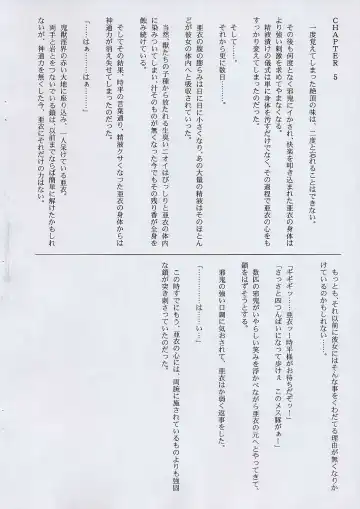 CHAPTER 5
一度覚えてしまった絶頂の味は、二度と忘れることはできない。
その後も何度となく邪鬼にイカされ、快楽を叩き込まれた亜衣の身体は
より強い刺激を求めてやまなくなる。
精液漬けの儀式は単に身体を汚すだけでなく、その過程で亜衣の心をも
すっかり変えてしまったのだった。
そして……。
それから更に数日……。
亜衣の腹の膨らみは日に日に小さくなり、あの大量の精液はそのほとん
どが彼女の体内へと吸収されていった。
当然、獣たちの子種から放たれる生臭いニオイはびっしりと亜衣の体内
に染みついてしまい、汁そのものが無くなった今でもその残り香が全身を
蝕み続けている。
そしてその結果、時平の言葉通り、精液クサくなった亜衣の身体からは
神通力が消え失せてしまったのだった。
「……はぁ……はぁ……」
鬼獣淫界の赤い大地に座り込み、一人呆けている亜衣。
両手と岩とをつないでいる鎖は、以前までならば簡単に解けたかもしれ
ないが、神通力を無くした今、亜衣にそれだけの力はない。
もっとも、それ以前に彼女にはそんな事をくわだてる理由が無くなりか
けているのかもしれない……。
「ギギギッ……亜衣ッー！時平様がお待ちだぞッー！
さっさと四つんばいになって歩けぇ　このメス豚がぁー」
数匹の邪鬼がいやらしい笑みを浮かべながら亜衣の元へとやってきて、
鎖をはずそうとする。
邪鬼の強い口調に気おされて、亜衣はか弱く返事をした。
「…………は……い…」
この時すでにもう、亜衣の心には、両腕に施されているものよりも強固
な鎖が突き刺さっていたのだった。